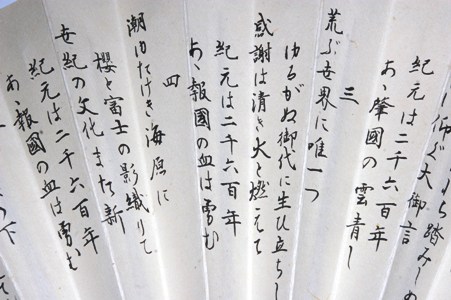 踏みし
仰ぐ大御言
紀元は二千六百年
あゝ肇國の雲青し
三
荒ぶ世界に唯一つ
ゆるがぬ御代に生ひ立ちし
感謝は清き火と燃えて
紀元は二千六百年
あゝ報國の血は勇む
四
潮ゆたけき海原に
櫻と富士の影織りて
世紀の文化また新
紀元は二千六百年
あゝ報國の血は勇む